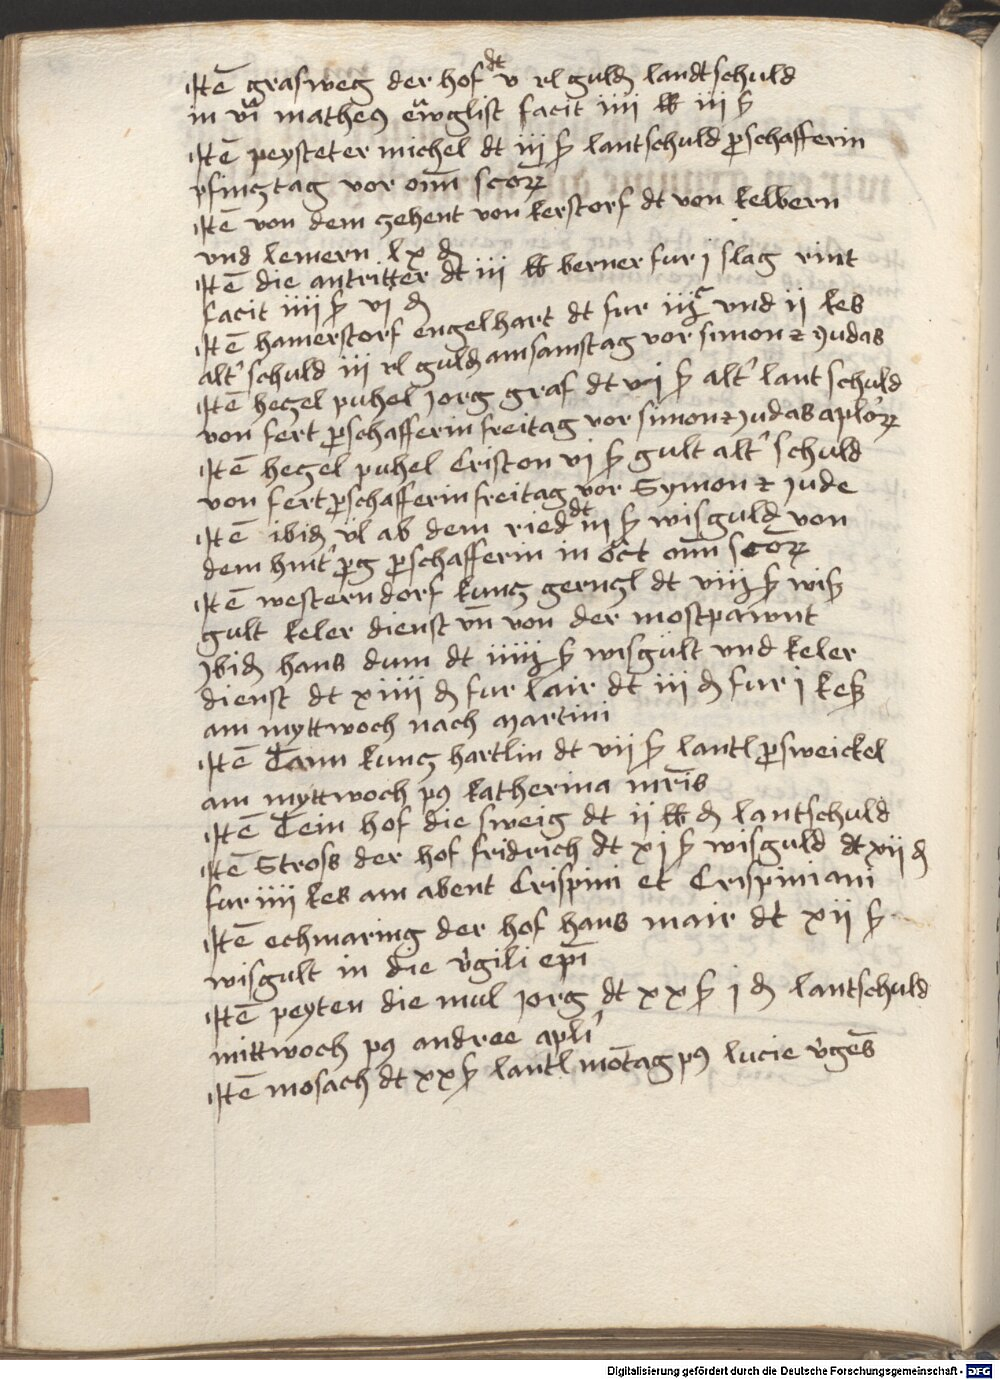 Itē grasweg der hof dt v rl guld landtschuld
in vī matheꝰ ewͣglist facit iiii lb iii ß
Itē peysteter michel dt iij ß lantschuld ꝑ schafferin
pfingtag vor oīm scoꝝ
Itē von dem zehent von kerstorf dt von kelbern
vnd lemern lx d
Itē die antritter dt iii lb berner fur j slag rint
facit iiii ß vi d
Itē hamerstorf engelhart dt fur vnd ij kes
alt' schuld iij rl guld am samstag vor simon ⁊ Judas
Itē hegel puhel Jorg graf dt vj ß alt' lant schuld
von fert ꝑ schafferin freitag vor simon ⁊ Judas aploꝝ
Itē hegel puhel Criston vj ß gult alt' schuld
von fert ꝑ schafferin freitag vor Symon ⁊ Jude
Itē ibid vl ab dem ried dt iij ß wisguld von
dem hint' ꝑg ꝑ schafferin in oct oīm scoꝝ
Itē westerndorf kunz gerngl dt ß wis
gult keler dienst vn̄ von der mostpawnt
Ibid hans dum dt ß wisgult vnd keler
dienst dt xiiii d fur lair dt iii d fur j kes
am myttwoch nach martini
Itē Tann kunz hartlin dt vij ß lantl ꝑ sweickel
am myttwoch pꝰ katherina mr̄is
Itē Tein hof die sweig dt ij lb d lantschuld
Itē Stross der hof fridrich dt xj ß wisguld dt xij d
fur iiii kes am abent Crispini et Crispiniani
Itē echmaring der hof hans mair dt xij ß
wisgult in die v'gili ep̄i
Itē peyten die mul Jorg dt xx ß j d lantschuld
mittwoch pꝰ andree apli'
Itē mosach dt xx ß lantl mōtag pꝰ lucie v'gēs
Digitalisierung gefördert durch die Deutsche Forschungsgemeinschaft - DFG